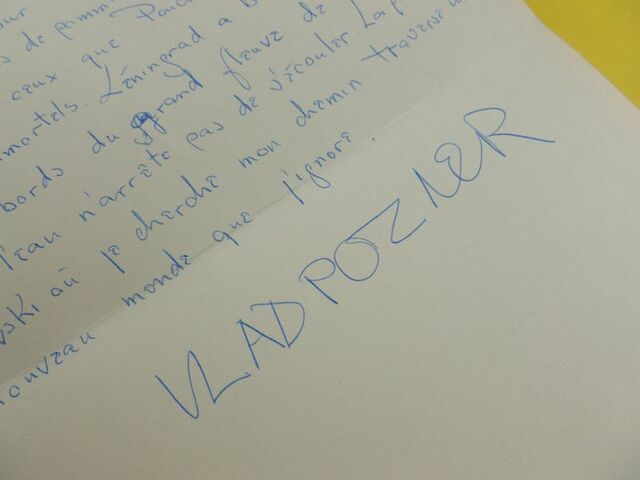 de pomm
ceux que Pouc
mortels. Léningrad a b
bords du grand fleuve de
l'eau n'arrête pas de s'écouler. La p
vski où je cherche mon chemin traverse un
nouveau monde que j'ignore.
VLAD POZNER